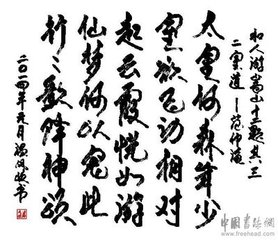 和人游嵩山十二题其三
二室道－范仲淹
太室何森耸少
室欲飞动相对
起云霞恍如游
仙梦何以宠此
行々歌降神颂
二〇一四年元月 书
中国书法网